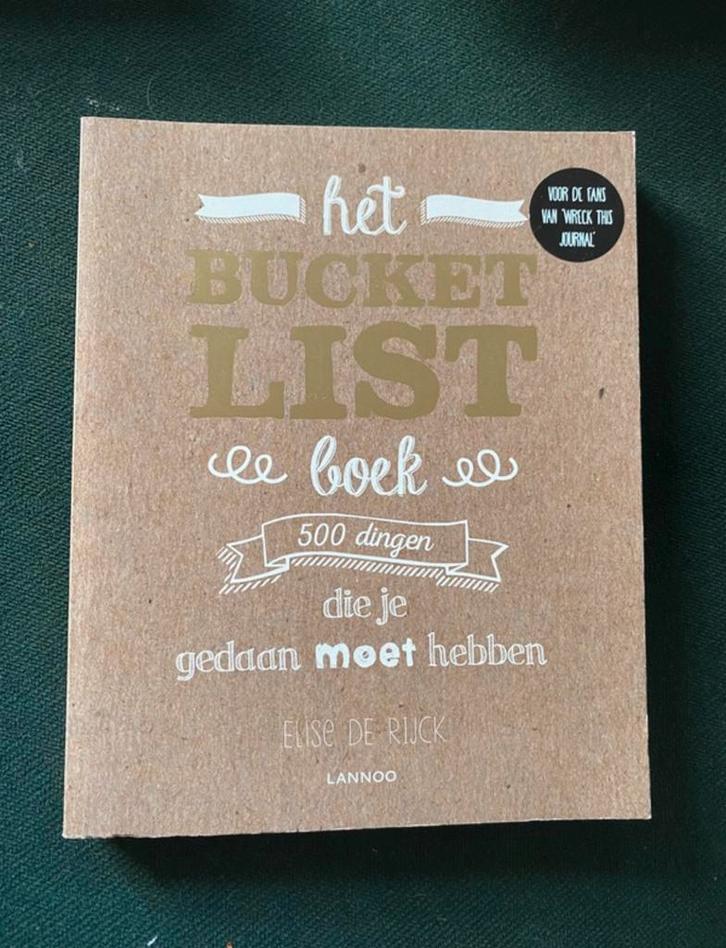 het
BUCKET
LIST
boek
500 dingen
die je
gedaan moet hebben
ELISE DE RIJCK
LANNOO
VOOR DE FANS
VAN 'WRECK THIS
JOURNAL'